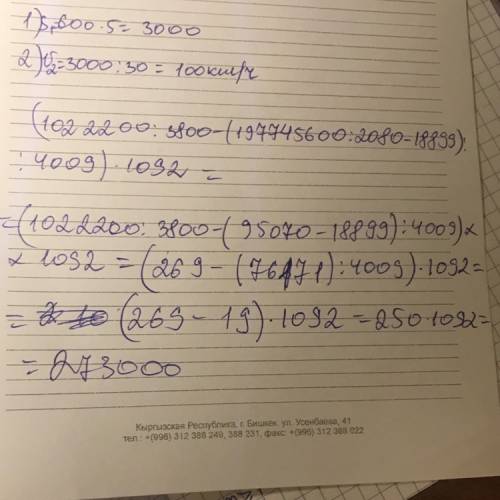 1) S=600·5=3000
2) υ₂=3000:30=100км/ч
(1022200:3800-(197745600:2080-18899):
:4009)·1092=
=(1022200:3800-(95070-18899):4009)×
×1092=(269-(76171):4009)·1092=
=(269-19)·1092=250·1092=
=273000
Кыргызская Республика, г. Бишкек, ул. Усенбаева, 41
тел.: +(996) 312 388 249, 388 231, факс: +(996) 312 388 022